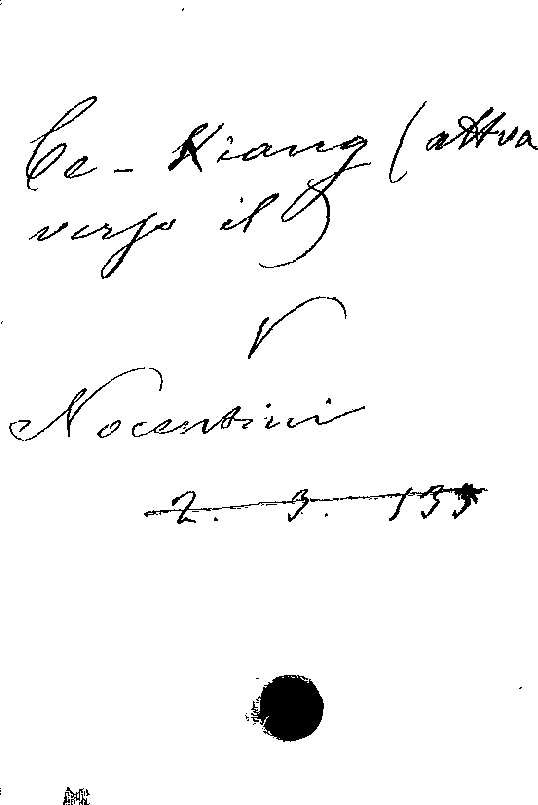 Ce-Kiang (attra
verso il)
V
Nocentini
2. 3. 133